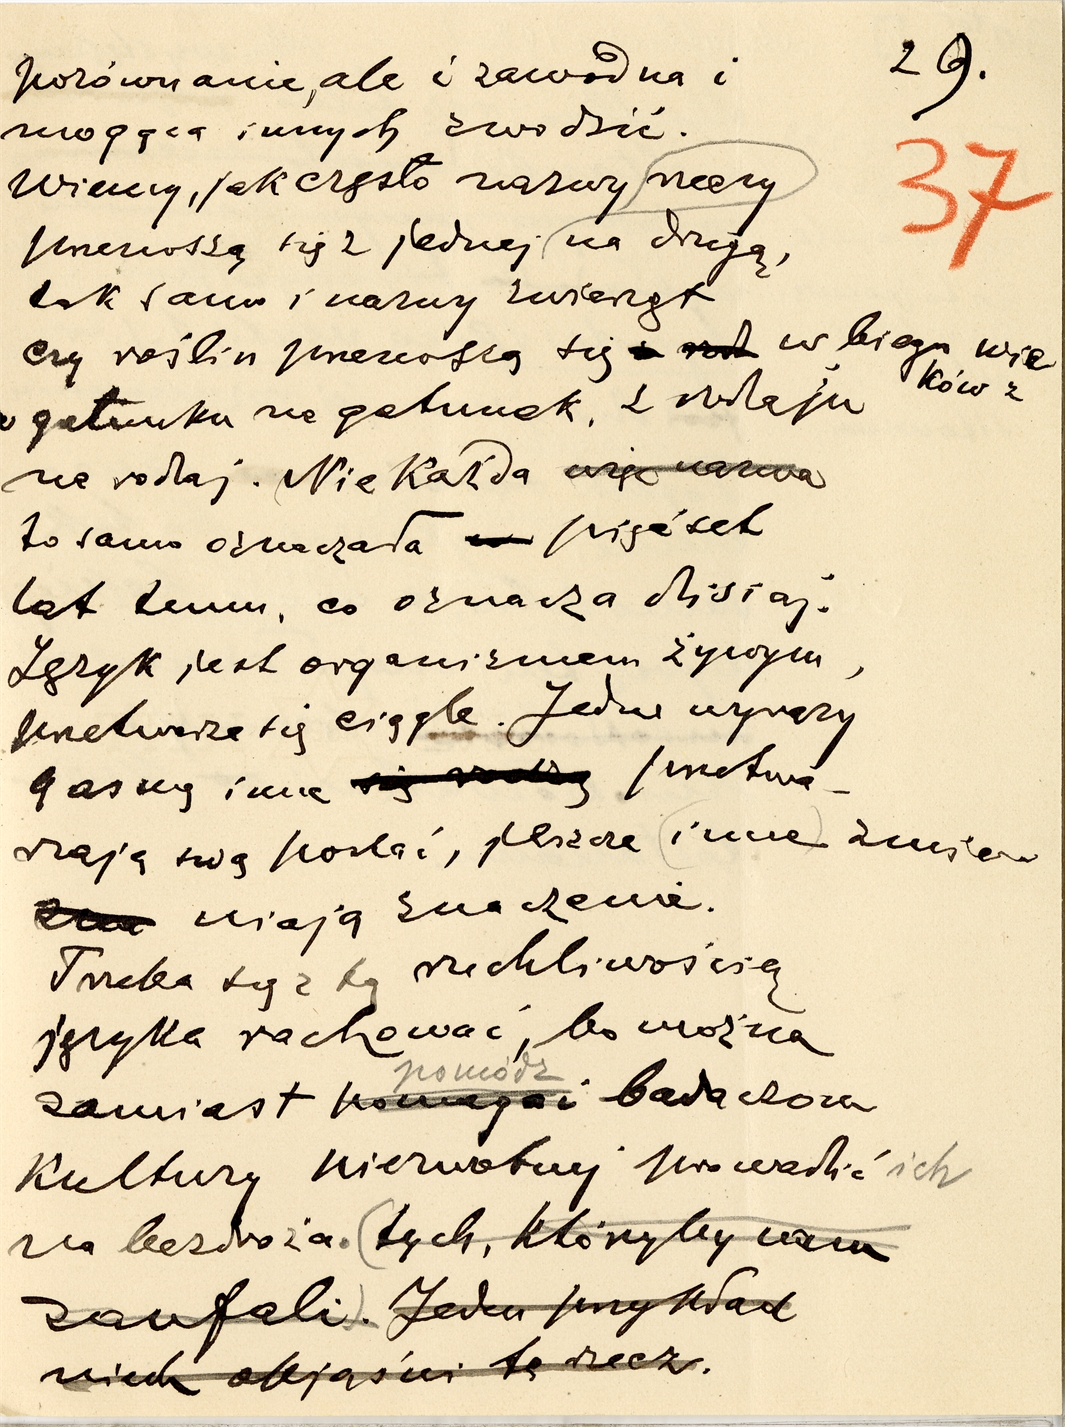 29.
37
porównanie, ale i zawodna i
mogąca innych zwodzić.
Wiemy, jak często nazwy rzeczy
przenoszą się z jednej na drugą,
tak samo i nazwy zwierząt
czy roślin przenoszą się w biegu wie
ków z
gatunku na gatunek, z rodzaju
na rodzaj. Nie każda więc nazwa
to samo oznaczała pięćset
lat temu, co oznacza dzisiaj.
Język jest organizmem żywym,
przetwarza się ciągle. Jedne wyrazy
gasną inne się rodzą przetwa-
rzają swą postać, jeszcze inne zmien
niają znaczenie.
Trzeba się z tą ruchliwością
języka rachować, bo można
pomódz
zamiast pomagać badaczom
kultury pierwotnej prowadzić ich
na bezdroża. (tych, któryby nam
zaufali). Jeden przykład
niech objaśni tę rzecz.